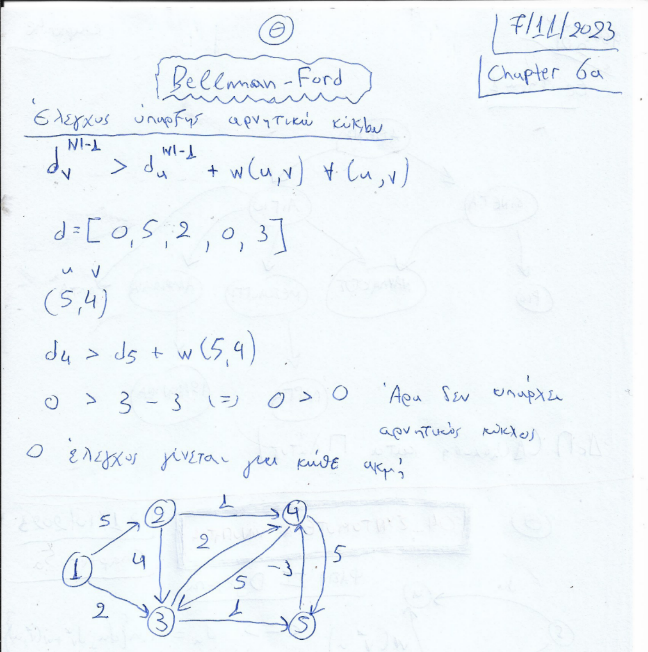 Θ
7/11/2023
Chapter 6a
Bellman-Ford
Έλεγχος ύπαρξης αρνητικού κύκλου
d_v^{|V|-1} > d_u^{|V|-1} + w(u,v) ∀ (u,v)
d=[0,5,2,0,3]
u v
(5,4)
d4 > d5 + w(5,4)
0 > 3 - 3 (=) 0 > 0 Άρα δεν υπάρχει
αρνητικός κύκλος
Ο έλεγχος γίνεται για κάθε ακμή
1
2
4
5
5
4
2
5
-3
5
1
2
3
1
5